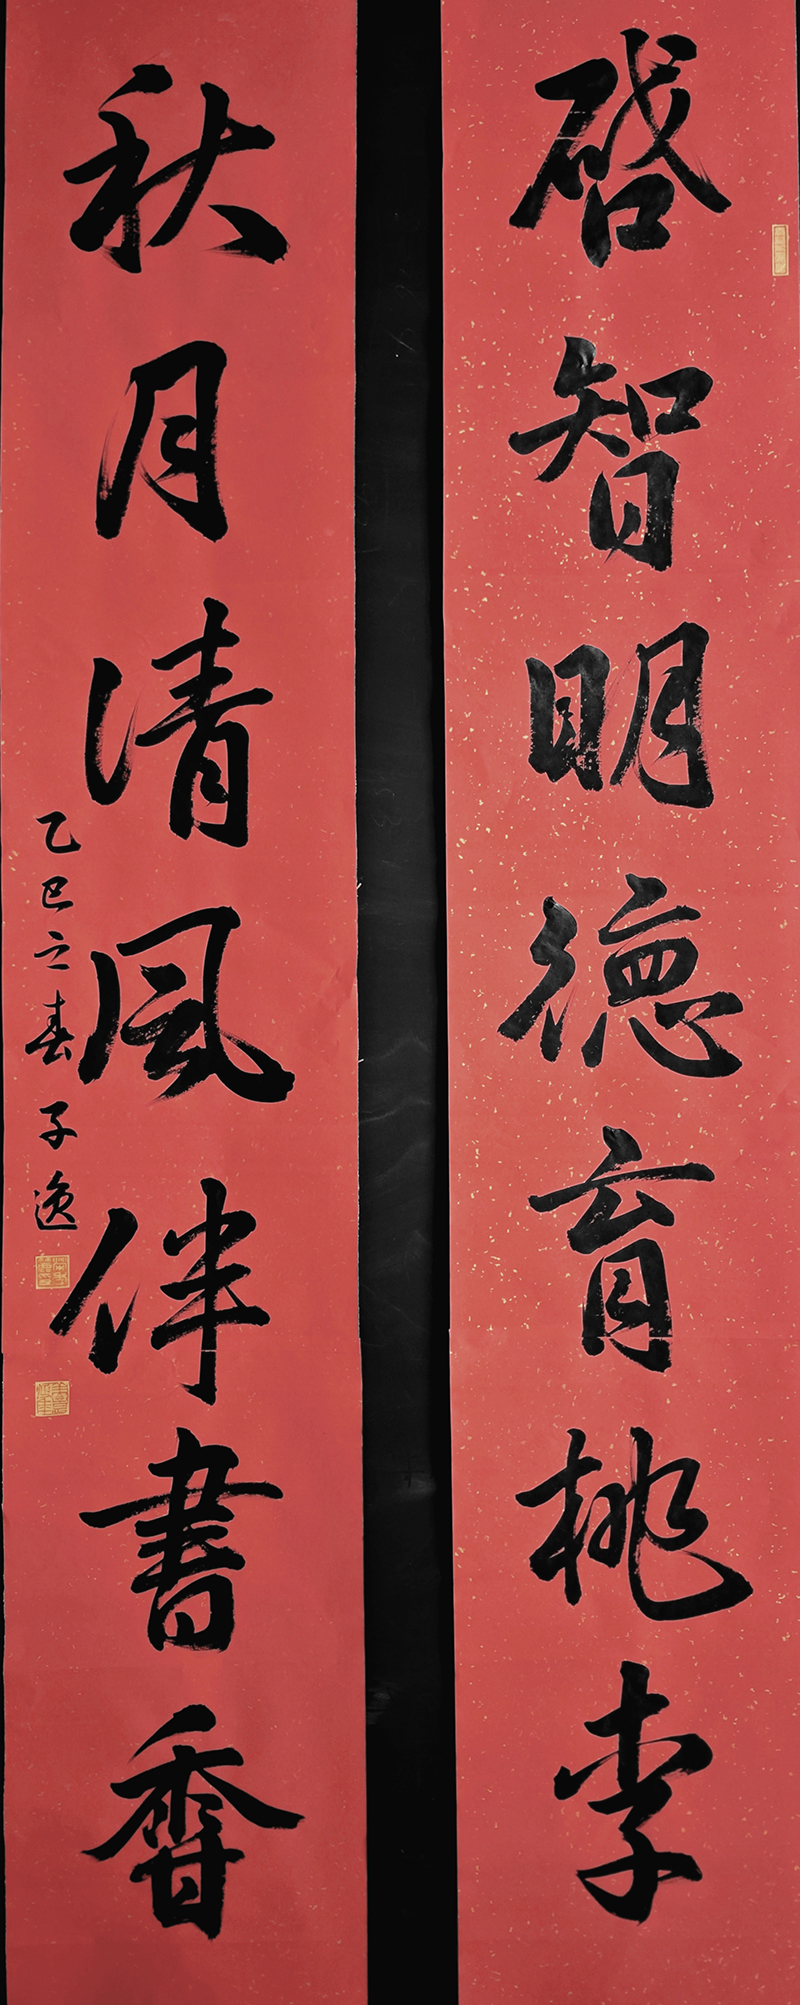 啓智明德育桃李
秋月清風伴書香
乙巳之春子逸